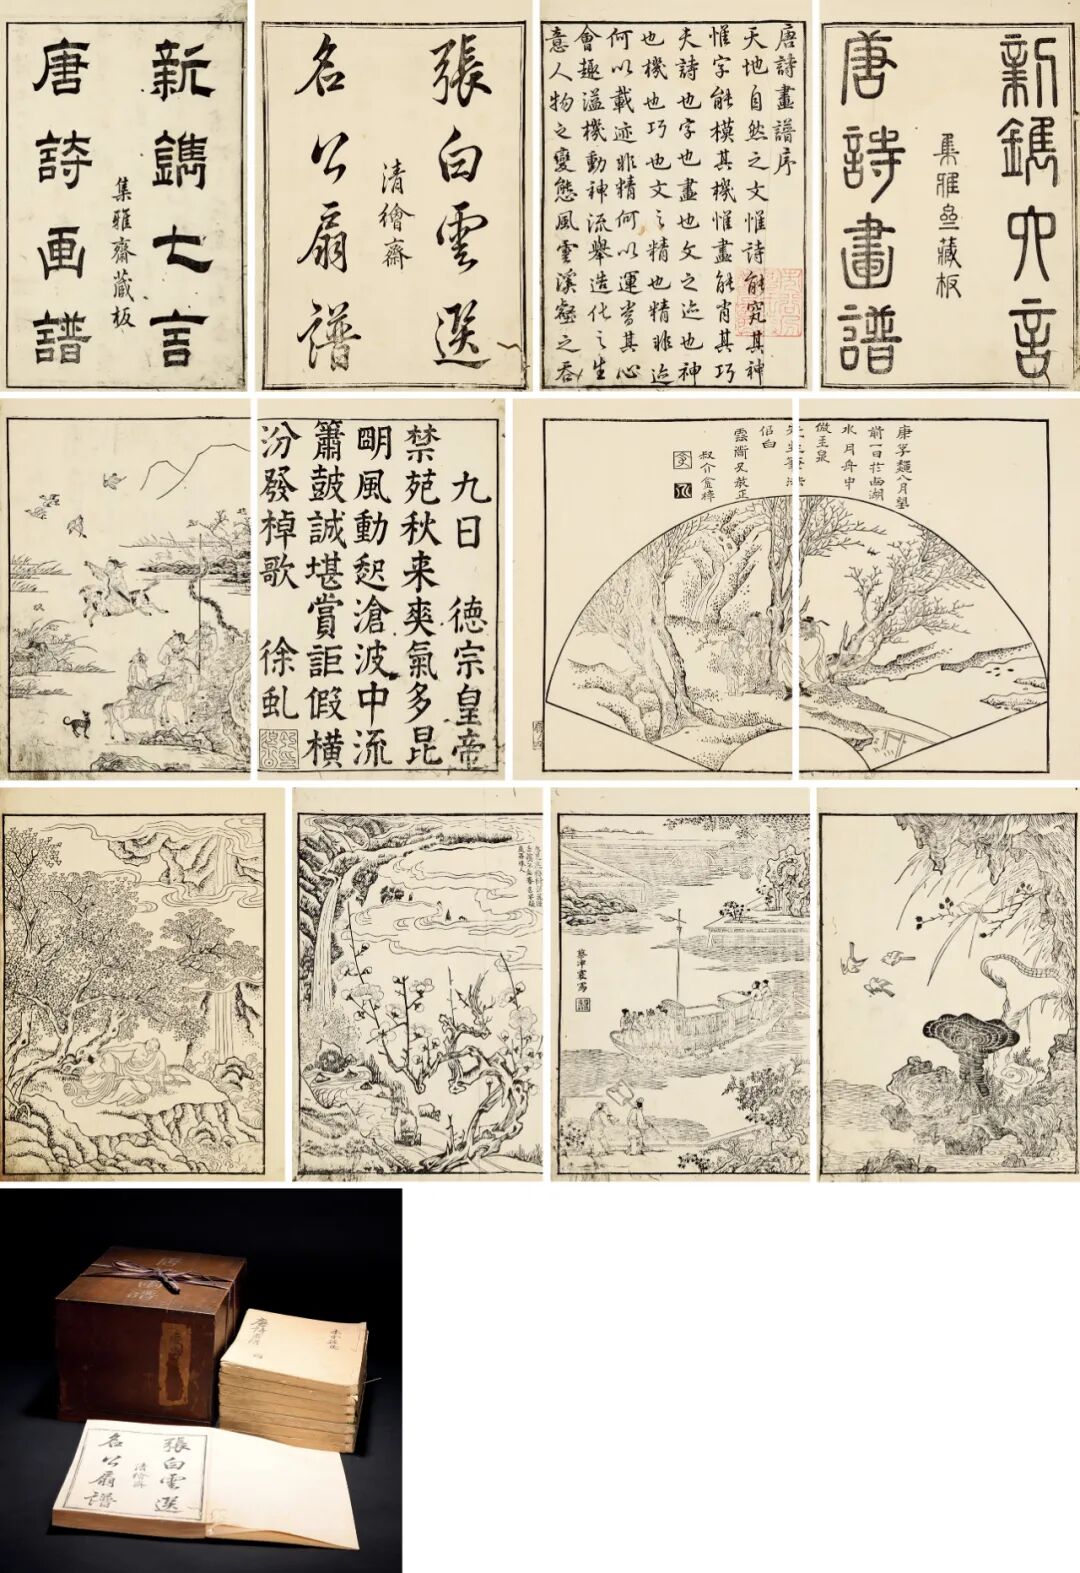 新鐫七言
唐詩画譜
集雅齋藏板
張白雲選
名公扇譜
清繪齋
唐詩畫譜序
天地自然之文惟詩能究其神
惟字能模其機惟畫能肖其巧
夫詩也字也畫也文之迹也神
也機也巧也文之精也精非迹
何以載迹非精何以運當其心
會趣溢機動神流舉造化之生
意人物之變態風雲溪壑之吞
新鐫六言
唐詩畫譜
集雅齋藏板
九日 德宗皇帝
禁苑秋来爽氣多昆
明風動起滄波中流
簫鼓誠堪賞詎假橫
汾發棹歌 徐虬
庚子麵八月望
前一日於西湖
水月舟中
倣王泉
侶白
霞衢又教正
叔介金梓
蔡冲寰寫
張白雲選
名公扇譜
清繪齋